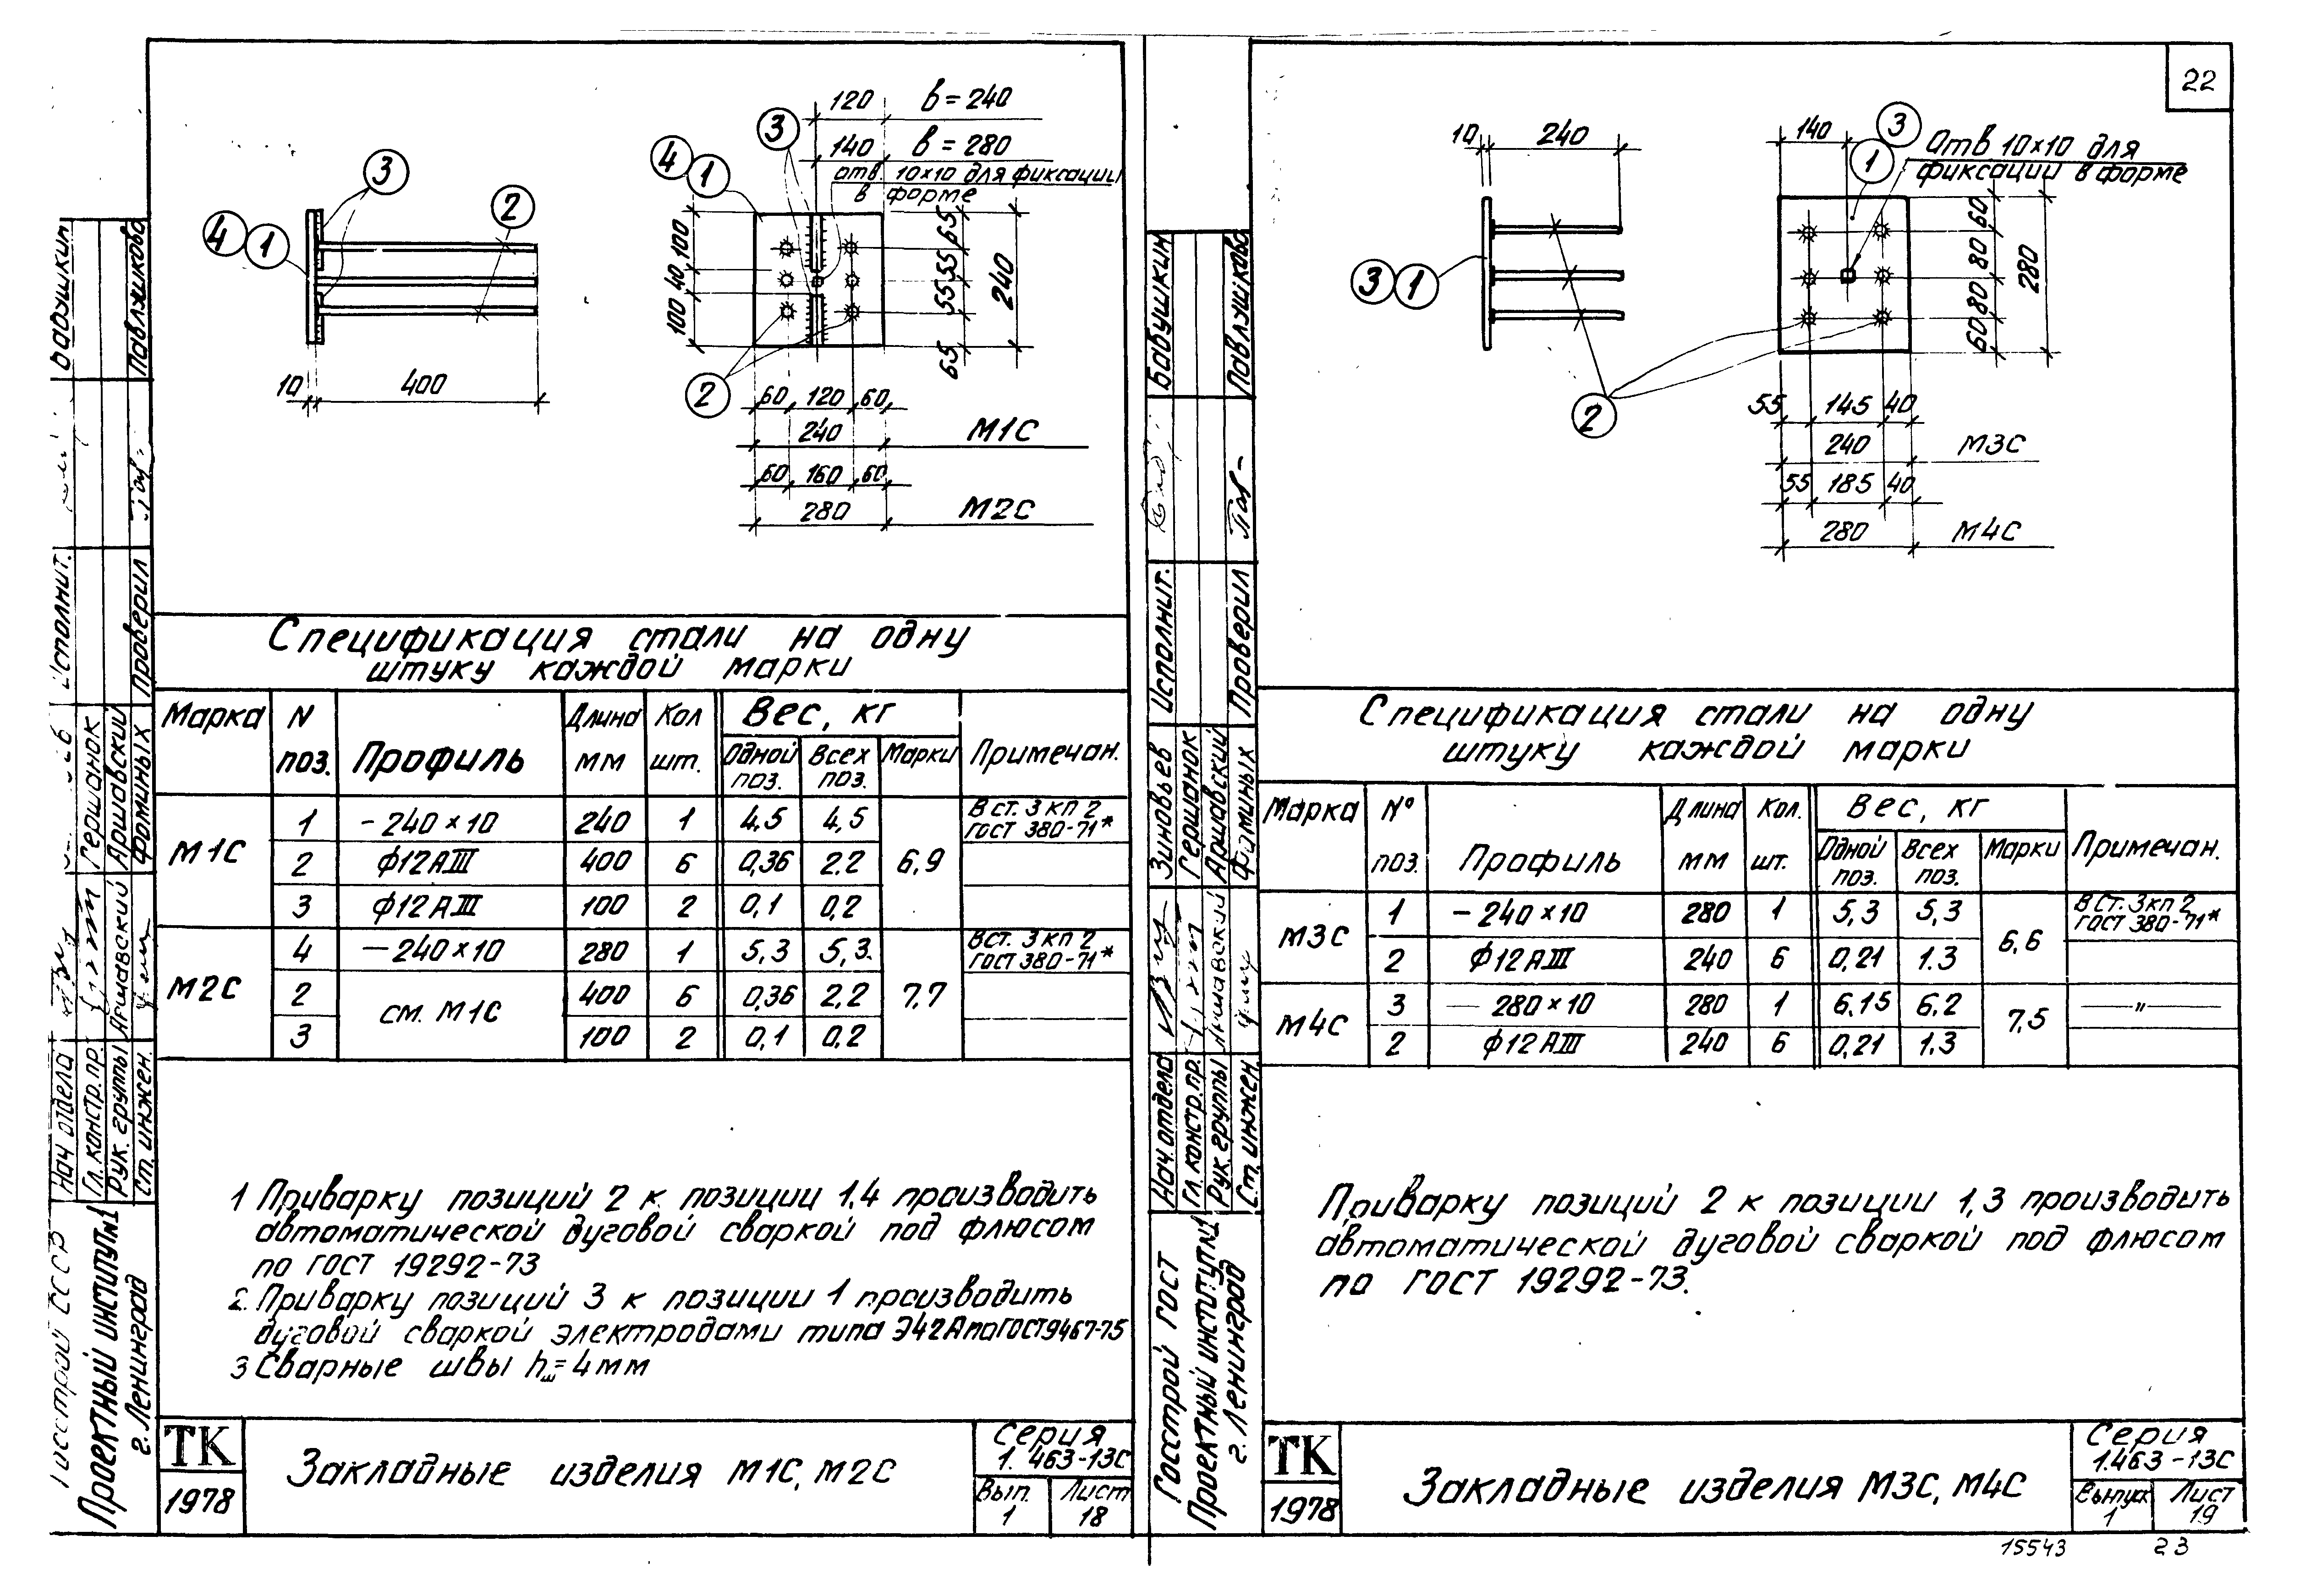 22
120 в=240
140 в=280
отв. 10×10 для фиксации
в форме
3
4 1
3
2
4 1
100
40
100
65
55
55
65
240
10 400
2
60 120 60
240 М1С
60 160 60
280 М2С
Спецификация стали на одну
штуку каждой марки
Марка N поз. Профиль Длина мм Кол шт. Вес, кг Примечан.
Одной поз. Всех поз. Марки
М1С 1 -240×10 240 1 4,5 4,5 6,9 В ст. 3 кп 2 ГОСТ 380-71*
2 ф12АIII 400 6 0,36 2,2
3 ф12АIII 100 2 0,1 0,2
М2С 4 -240×10 280 1 5,3 5,3. 7,7 В ст. 3 кп 2 ГОСТ 380-71*
2 см. М1С 400 6 0,36 2,2
3 100 2 0,1 0,2
1 Приварку позиций 2 к позиции 1,4 производить
автоматической дуговой сваркой под флюсом
по ГОСТ 19292-73
2. Приварку позиций 3 к позиции 1 производить
дуговой сваркой электродами типа Э42А по ГОСТ 9467-75
3 Сварные швы hш=4мм
ТК
1978
Закладные изделия М1С, М2С
Серия
1.463-13С
Вып. 1
Лист 18
Госстрой СССР
Проектный институт №1
г. Ленинград
Нач отдела
Гл. констр. пр. Гершанок
Рук. группы Аршавский
Ст. инжен. Фоминых
Исполнит. Бабушкин
Проверил Павлушкова
10 240
3 1
2
140
3
1
Отв 10×10 для
фиксации в форме
60
80
80
60
280
55 145 40
240 М3С
55 185 40
280 М4С
Спецификация стали на одну
штуку каждой марки
Марка Nº поз. Профиль Длина мм Кол. шт. Вес, кг Примечан.
Одной поз. Всех поз. Марки
М3С 1 -240×10 280 1 5,3 5,3 6,6 В Ст. 3 кп 2 ГОСТ 380-71*
2 ф12АIII 240 6 0,21 1.3
М4С 3 - 280×10 280 1 6,15 6,2 7,5 —"—
2 ф12АIII 240 6 0,21 1.3
Приварку позиций 2 к позиции 1,3 производить
автоматической дуговой сваркой под флюсом
по ГОСТ 19292-73.
ТК
1978
Закладные изделия М3С, М4С
Серия
1.463-13С
Выпуск 1
Лист 19
Госстрой ГОСТ
Проектный институт №1
г. Ленинград
Нач. отдела Зиновьев
Гл. констр. пр. Гершанок
Рук. группы Аршавский
Ст. инжен. Фоминых
Исполнит. Бабушкин
Проверил Павлушкова
15543 23